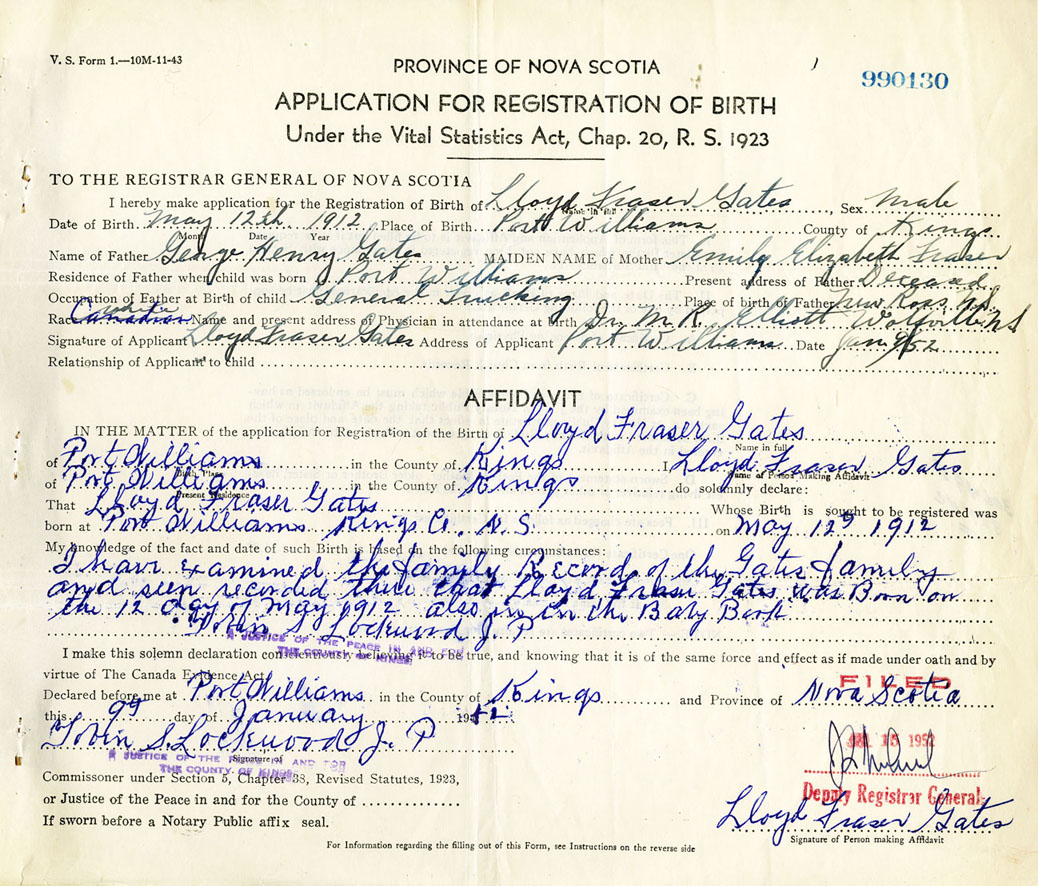 V. S. Form 1.—10M-11-43
990130
PROVINCE OF NOVA SCOTIA
APPLICATION FOR REGISTRATION OF BIRTH
Under the Vital Statistics Act, Chap. 20, R. S. 1923
TO THE REGISTRAR GENERAL OF NOVA SCOTIA
I hereby make application for the Registration of Birth of Lloyd Fraser Gates, Sex Male
Name in full
Date of Birth May 12th 1912 Place of Birth Port Williams County of Kings
Month Date Year
Name of Father George Henry Gates MAIDEN NAME of Mother Emily Elizabeth Fraser
Residence of Father when child was born Port Williams Present address of Father Deceased
Occupation of Father at Birth of child General Trucking Place of birth of Father New Ross N.S.
Race Canadian White Name and present address of Physician in attendance at birth Dr. M. R. Elliott Wolfville N S
Signature of Applicant Lloyd Fraser Gates Address of Applicant Port Williams Date Jan 9/52
Relationship of Applicant to child
AFFIDAVIT
IN THE MATTER of the application for Registration of the Birth of Lloyd Fraser Gates
Name in full
of Port Williams in the County of Kings I, Lloyd Fraser Gates
Birth Place Name of Person Making Affidavit
of Port Williams in the County of Kings do solemnly declare:
Present Residence
That Lloyd Fraser Gates Whose Birth is sought to be registered was
born at Port Williams Kings Co. N. S. on May 12th 1912
My knowledge of the fact and date of such Birth is based on the following circumstances:
I have examined the family Record of the Gates family
and seen recorded there that Lloyd Fraser Gates was Born on
the 12 day of May 1912 also in the Baby Book
Tobin S. Lockwood J. P
A JUSTICE OF THE PEACE IN AND FOR
THE COUNTY OF KINGS
I make this solemn declaration conscientiously believing it to be true, and knowing that it is of the same force and effect as if made under oath and by
virtue of The Canada Evidence Act.
FILED
Declared before me at Port Williams in the County of Kings and Province of Nova Scotia
this 9th day of January 1952
15 1952
Tobin S. Lockwood J. P
Signature of
A JUSTICE OF THE PEACE IN AND FOR
THE COUNTY OF KINGS
Commissoner under Section 5, Chapter 38, Revised Statutes, 1923,
Deputy Registrar General
or Justice of the Peace in and for the County of
Lloyd Fraser Gates
If sworn before a Notary Public affix seal.
Signature of Person making Affidavit
For Information regarding the filling out of this Form, see Instructions on the reverse side